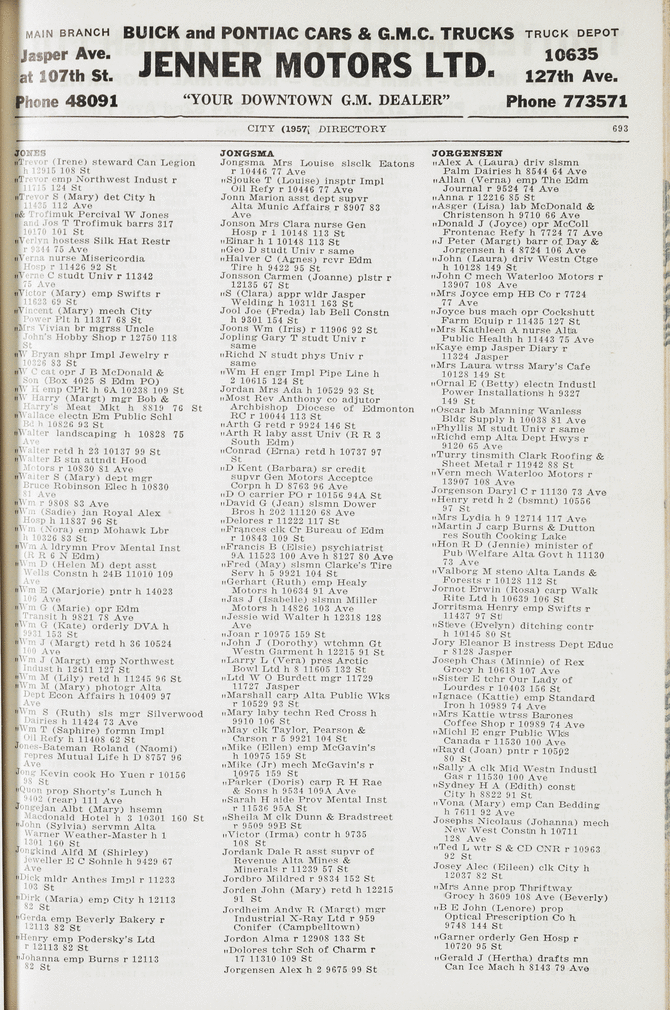 MAIN BRANCH BUICK and PONTIAC CARS & G.M.C. TRUCKS TRUCK DEPOT
Jasper Ave. JENNER MOTORS LTD. 10635
at 107th St. 127th Ave.
Phone 48091 "YOUR DOWNTOWN G.M. DEALER" Phone 773571
CITY (1957) DIRECTORY 693
JONES
"Trevor (Irene) steward Can Legion
h 12915 108 St
"Trevor emp Northwest Indust r
11715 124 St
"Trevor S (Mary) det City h
11435 112 Ave
"& Trofimuk Percival W Jones
and Jos T Trofimuk barrs 317
10170 101 St
"Verlyn hostess Silk Hat Restr
r 9344 75 Ave
"Verna nurse Misericordia
Hosp r 11426 92 St
"Verne C studt Univ r 11342
75 Ave
"Victor (Mary) emp Swifts r
11623 69 St
"Vincent (Mary) mech City
Power Plt h 11317 68 St
"Mrs Vivian br mgrss Uncle
John's Hobby Shop r 12750 118
St
"W Bryan shpr Impl Jewelry r
10326 83 St
"W C cat opr J B McDonald &
Son (Box 4025 S Edm PO)
"W H emp CPR h 6A 10238 109 St
"W Harry (Margt) mgr Bob &
Harry's Meat Mkt h 8819 76 St
"Wallace electn Em Public Schl
Bd h 10826 93 St
"Walter landscaping h 10828 75
Ave
"Walter retd h 23 10137 99 St
"Walter B stn attndt Hood
Motors r 10830 81 Ave
"Walter S (Mary) dept mgr
Bruce Robinson Elec h 10830
81 Ave
"Wm r 9808 83 Ave
"Wm (Sadie) jan Royal Alex
Hosp h 11837 96 St
"Wm (Nora) emp Mohawk Lbr
h 10326 83 St
"Wm A ldrymn Prov Mental Inst
(R R 6 N Edm)
"Wm D (Helen M) dept asst
Wells Constn h 24B 11010 109
Ave
"Wm E (Marjorie) pntr h 14023
106 Ave
"Wm G (Marie) opr Edm
Transit h 9821 78 Ave
"Wm G (Kate) orderly DVA h
9931 153 St
"Wm J (Margt) retd h 36 10524
100 Ave
"Wm J (Margt) emp Northwest
Indust h 12611 127 St
"Wm M (Lily) retd h 11245 96 St
"Wm M (Mary) photogr Alta
Dept Econ Affairs h 10409 97
Ave
"Wm S (Ruth) sls mgr Silverwood
Dairies h 11424 73 Ave
"Wm T (Saphire) formn Impl
Oil Refy h 11408 62 St
Jones-Bateman Roland (Naomi)
repres Mutual Life h D 8757 96
Ave
Jong Kevin cook Ho Yuen r 10156
98 St
"Quon prop Shorty's Lunch h
9402 (rear) 111 Ave
Jongejan Albt (Mary) hsemn
Macdonald Hotel h 3 10301 160 St
"John (Sylvia) servmn Alta
Warner Weather-Master h 1
1301 160 St
Jongkind Alfd M (Shirley)
jeweller E C Sohnle h 9429 67
Ave
"Dick mldr Anthes Impl r 11233
103 St
"Dirk (Maria) emp City h 12113
82 St
"Gerda emp Beverly Bakery r
12113 82 St
"Henry emp Podersky's Ltd
r 12113 82 St
"Johanna emp Burns r 12113
82 St
JONGSMA
Jongsma Mrs Louise slsclk Eatons
r 10446 77 Ave
"Sjouke T (Louise) insptr Impl
Oil Refy r 10446 77 Ave
Jonn Marion asst dept supvr
Alta Munic Affairs r 8907 83
Ave
Jonson Mrs Clara nurse Gen
Hosp r 1 10148 113 St
"Einar h 1 10148 113 St
"Geo D studt Univ r same
"Halver C (Agnes) rcvr Edm
Tire h 9422 95 St
Jonsson Carmen (Joanne) plstr r
12135 67 St
"S (Clara) appr wldr Jasper
Welding h 10311 163 St
Jool Joe (Freda) lab Bell Constn
h 9301 154 St
Joons Wm (Iris) r 11906 92 St
Jopling Gary T studt Univ r
same
"Richd N studt phys Univ r
same
"Wm H engr Impl Pipe Line h
2 10615 124 St
Jordan Mrs Ada h 10529 93 St
"Most Rev Anthony co adjutor
Archbishop Diocese of Edmonton
RC r 10044 113 St
"Arth G retd r 9924 146 St
"Arth R laby asst Univ (R R 3
South Edm)
"Conrad (Erna) retd h 10737 97
St
"D Kent (Barbara) sr credit
supvr Gen Motors Acceptce
Corpn h D 8763 96 Ave
"D O carrier PO r 10156 94A St
"David G (Jean) slsmn Dower
Bros h 202 11120 68 Ave
"Delores r 11222 117 St
"Frances clk Cr Bureau of Edm
r 10843 109 St
"Francis B (Elsie) psychiatrist
9A 11523 100 Ave h 8127 80 Ave
"Fred (May) slsmn Clarke's Tire
Serv h 5 9921 104 St
"Gerhart (Ruth) emp Healy
Motors h 10634 91 Ave
"Jas J (Isabelle) slsmn Miller
Motors h 14826 103 Ave
"Jessie wid Walter h 12318 128
Ave
"Joan r 10975 159 St
"John J (Dorothy) wtchmn Gt
Westn Garment h 12215 91 St
"Larry L (Vera) pres Arctic
Bowl Ltd h 8 11605 132 St
"Ltd W O Burdett mgr 11729
11727 Jasper
"Marshall carp Alta Public Wks
r 10529 93 St
"Mary laby techn Red Cross h
9910 106 St
"May clk Taylor, Pearson &
Carson r 5 9921 104 St
"Mike (Ellen) emp McGavin's
h 10975 159 St
"Mike (Jr) mech McGavin's r
10975 159 St
"Parker (Doris) carp R H Rae
& Sons h 9534 109A Ave
"Sarah H aide Prov Mental Inst
r 11536 95A St
"Sheila M clk Dunn & Bradstreet
r 9509 99B St
"Victor (Irma) contr h 9735
108 St
Jordank Dale R asst supvr of
Revenue Alta Mines &
Minerals r 11239 57 St
Jordbro Mildred r 9834 152 St
Jorden John (Mary) retd h 12215
91 St
Jordheim Andw R (Margt) mgr
Industrial X-Ray Ltd r 959
Conifer (Campbelltown)
Jordon Alma r 12908 133 St
"Dolores tchr Sch of Charm r
17 11310 109 St
Jorgensen Alex h 2 9675 99 St
JORGENSEN
"Alex A (Laura) driv slsmn
Palm Dairies h 8544 64 Ave
"Allan (Verna) emp The Edm
Journal r 9524 74 Ave
"Anna r 12216 85 St
"Asger (Lisa) lab McDonald &
Christenson h 9710 66 Ave
"Donald J (Joyce) opr McColl
Frontenac Refy h 7724 77 Ave
"J Peter (Margt) barr of Day &
Jorgensen h 4 8724 106 Ave
"John (Laura) driv Westn Ctge
h 10128 149 St
"John C mech Waterloo Motors r
13907 108 Ave
"Mrs Joyce emp HB Co r 7724
77 Ave
"Joyce bus mach opr Cockshutt
Farm Equip r 11435 127 St
"Mrs Kathleen A nurse Alta
Public Health h 11443 75 Ave
"Kaye emp Jasper Diary r
11324 Jasper
"Mrs Laura wtrss Mary's Cafe
10128 149 St
"Ornal E (Betty) electn Industl
Power Installations h 9327
149 St
"Oscar lab Manning Wanless
Bldg Supply h 10038 81 Ave
"Phyllis M studt Univ r same
"Richd emp Alta Dept Hwys r
9120 65 Ave
"Turry tinsmith Clark Roofing &
Sheet Metal r 11942 88 St
"Vern mech Waterloo Motors r
13907 108 Ave
Jorgenson Daryl C r 11130 73 Ave
"Henry retd h 2 (bsmnt) 10556
97 St
"Mrs Lydia h 9 12714 117 Ave
"Martin J carp Burns & Dutton
res South Cooking Lake
"Hon R D (Jennie) minister of
Pub Welfare Alta Govt h 11130
73 Ave
"Valborg M steno Alta Lands &
Forests r 10128 112 St
Jornot Erwin (Rosa) carp Walk
Rite Ltd h 10639 106 St
Jorritsma Henry emp Swifts r
11437 97 St
"Steve (Evelyn) ditching contr
h 10145 80 St
Jory Eleanor B instress Dept Educ
r 8128 Jasper
Joseph Chas (Minnie) of Rex
Grocy h 10618 107 Ave
"Sister E tchr Our Lady of
Lourdes r 10403 156 St
"Ignace (Kattie) emp Standard
Iron h 10989 74 Ave
"Mrs Kattie wtrss Barones
Coffee Shop r 10989 74 Ave
"Michl E engr Public Wks
Canada r 11530 100 Ave
"Rayd (Joan) pntr r 10592
80 St
"Sally A clk Mid Westn Industl
Gas r 11530 100 Ave
"Sydney H A (Edith) const
City h 8822 91 St
"Vona (Mary) emp Can Bedding
h 7611 92 Ave
Josephs Nicolaus (Johanna) mech
New West Constn h 10711
128 Ave
"Ted L wtr S & CD CNR r 10963
92 St
Josey Alec (Eileen) clk City h
12037 82 St
"Mrs Anne prop Thriftway
Grocy h 3609 108 Ave (Beverly)
"B E John (Lenore) prop
Optical Prescription Co h
9748 144 St
"Garner orderly Gen Hosp r
10720 95 St
"Gerald J (Hertha) drafts mn
Can Ice Mach h 8143 79 Ave